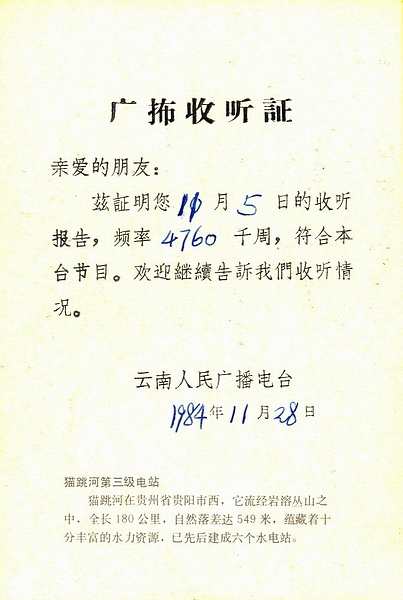 广㧊收听証
亲爱的朋友：
兹証明您 11 月 5 日的收听
报告，频率 4760 千周，符合本
台节目。欢迎継續告訴我們收听情
况。
云南人民广播电台
1984年 11 月 28 日
猫跳河第三级电站
猫跳河在贵州省贵阳市西，它流经岩溶丛山之
中，全长 180 公里，自然落差达 549 米，蕴藏着十
分丰富的水力资源，已先后建成六个水电站。